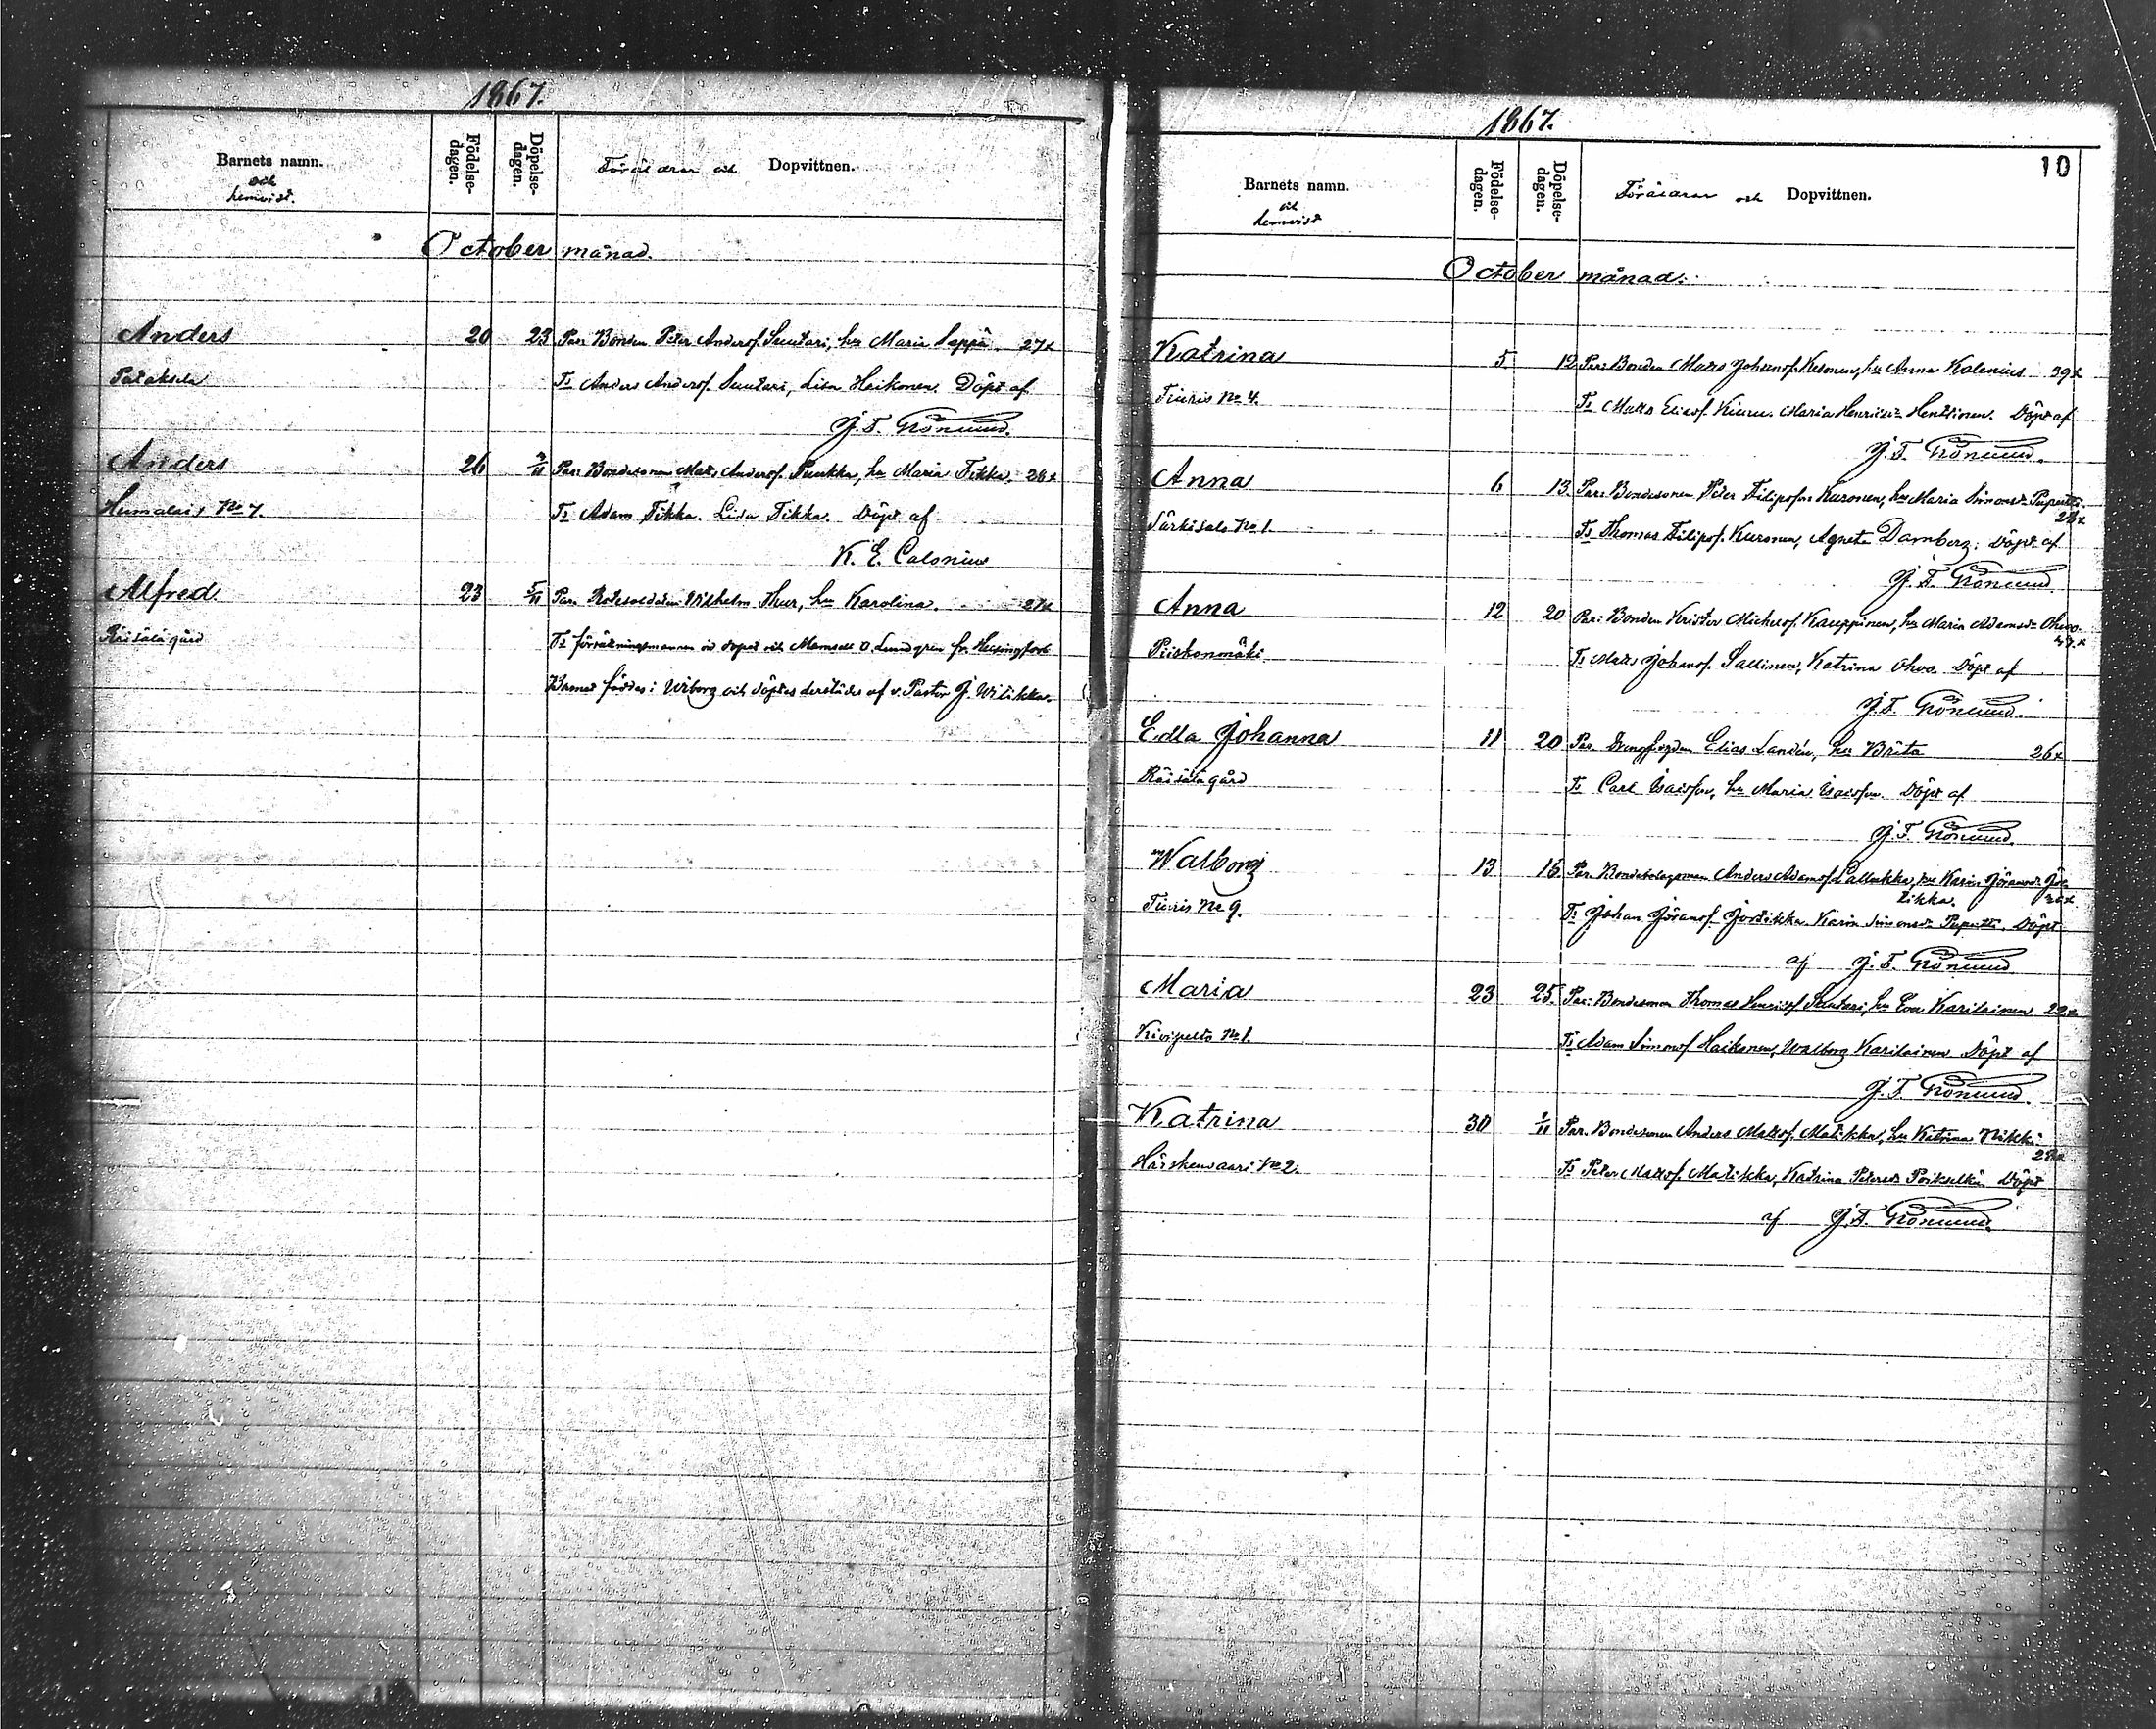 1867.
Barnets namn. Födelse-dagen. Döpelse-dagen. Föräldrar och Dopvittnen.
och
hemvist.
October månad.
Anders 20 23 Par: Bonden Peter Andersf. Suutari, hu Maria Seppä 27 x
Pataksela Ts Anders Andersf. Suutari, Lisa Heikonen. Döpt af
J. F. Grönlund.
Anders 26 3/11 Par: Bondesonen Mats Andersf. Puukka, hu Maria Tikka. 26 x
Humalais No 7. Ts Adam Tikka. Lisa Tikka. Döpt af
K. E. Calonius
Alfred 23 5/11 Par. Wilhelm Thur, hu Karolina. 27 x
Räisälä gård Ts vid dopet och Mamsell O. Lundgren fr. Helsingfors
Barnet föddes i Wiborg och döptes derstädes af v. Pastor J. Wilikka.
1867.
10
Barnets namn. Födelse-dagen. Döpelse-dagen. Föräldrar och Dopvittnen.
och
hemvist
October månad.
Katrina 5 12 Par: Bonden Matts Johansf. Kesonen, hu Anna Kolenius 39 x
Tiuris No 4. Ts Matts Eliasf. Kiuru. Maria Henricsd. Henttinen. Döpt af
J. F. Grönlund.
Anna 6 13. Par: Bondesonen Peter Filipsfon Kuronen, hu Maria Simonsd. Puputti.
28 x
Särkisalo No 1 Ts Thomas Filipsf. Kuronen, Agneta Damberg. Döpt af
J. F. Grönlund
Anna 12 20 Par: Bonden Krister Michelsf. Kauppinen, hu Maria Adamsd. Ohvo.
Piiskonmäki Ts Matts Johansf. Sallinen, Katrina Ohvo. Döpt af
J. F. Grönlund.
Edla Johanna 11 20 Par. Elias Landén, hu Brita 26 x
Räisälä gård Ts Carl Isacsfon, hu Maria Isacsfon. Döpt af
J. F. Grönlund.
Walborg 13 16. Par. Bondebolagsman Anders Adamsf. Pallukka, hu Karin Göransd. Jör-
tikka.
Tiuris No 9. Ts Johan Göransf. Jortikka. Karin Simonsd. Puputti. Döpt
af J. F. Grönlund
Maria 23 25. Par: Bondesonen Thomas Henricsf. Suutari, hu Eva Karilainen 22 x
Kivipelto No 1. Ts Adam Simonsf. Haikonen, Walborg Karilainen. Döpt af
J. F. Grönlund.
Katrina 30 1/11 Par. Bondesonen Anders Mattsf. Matikka, hu Katrina Nikki.
Härskenvaari No 2. Ts Peter Mattsf. Matikka, Katrina Petersd. Poikselkä Döpt
af J. F. Grönlund.